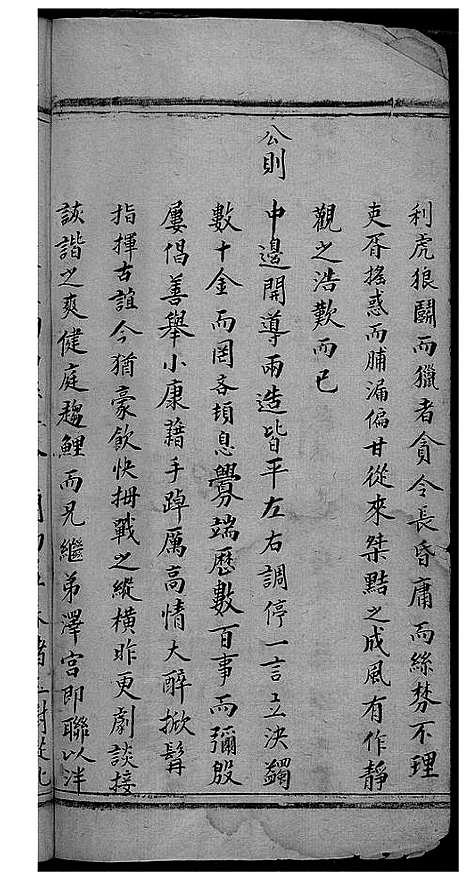 利虎狼鬬而獵者貪令長昏庸而絲棼不理
吏胥搖惑而脯漏偏甘從來桀黠之成風有作靜
觀之浩歎而已
公則
中邊開導兩造皆平左右調停一言立決蠲
數十金而罔吝頓息釁端歷數百事而彌殷
屢倡善舉小康藉手踔厲高情大醉掀髯
指揮古誼今猶豪飲快拇戰之縱橫昨更劇談接
詼諧之爽健庭趨鯉而兄繼弟澤宮即聯以泮